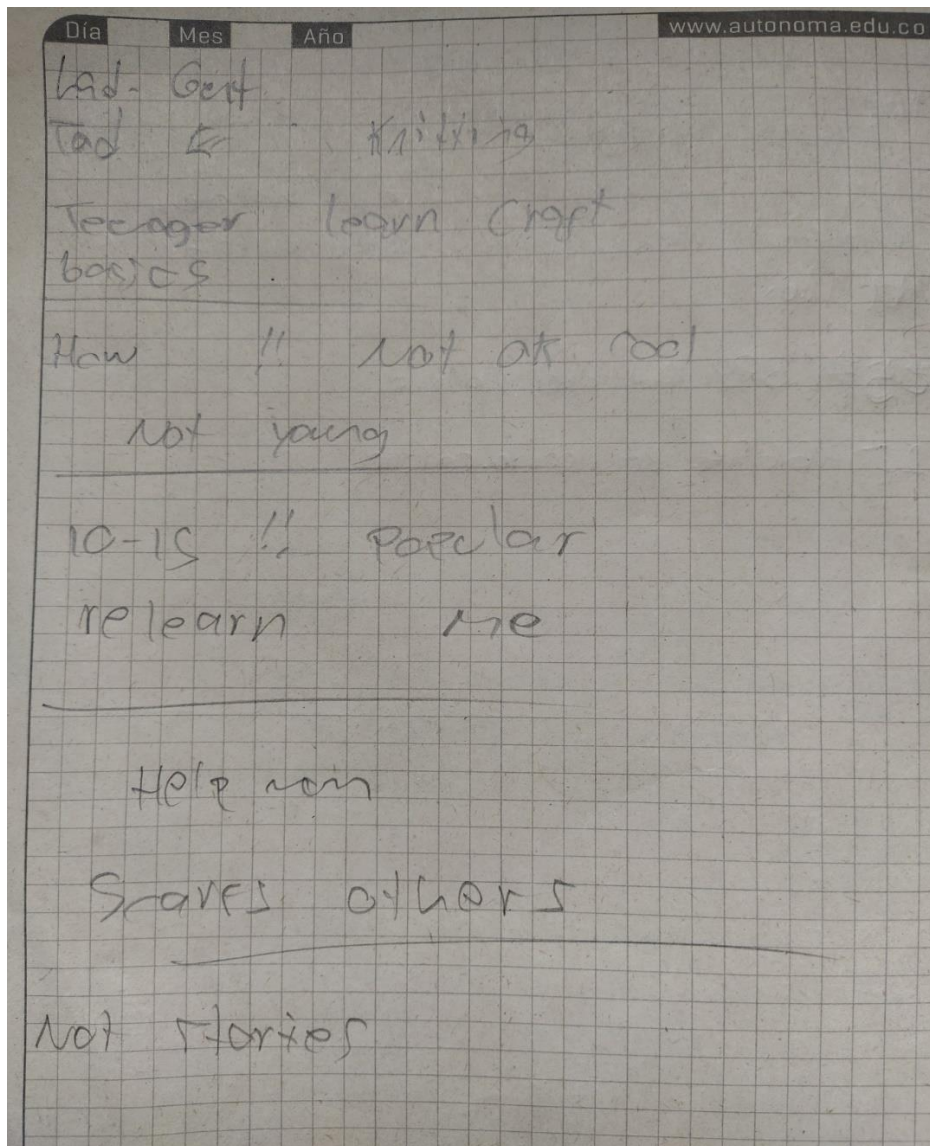 Día Mes Año www.autonoma.edu.co
Lad- Gent
Tad Knitting
Teenager learn craft
basics
How !! Not ok
Not young
10-15 !! Popular
relearn me
Help mom
others
Not stories